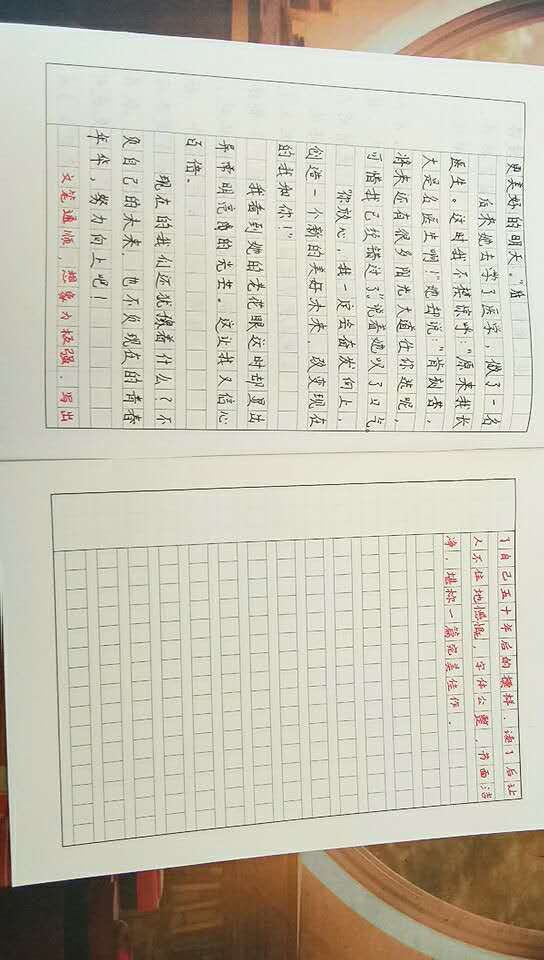 更美好的明天。"省
后来她去学了医学，做了一名
医生。这时我不禁惊呼："原来我长
大是名医生啊！"她却说："省刻苦，
将来还有很多阳光大道任你选呢，
可惜我已经错过了。"说着她叹了口气。
"你放心，我一定会奋发向上，
创造一个新的美好未来，改变现在
的我和你！"
我看到她的老花眼这时却冒出
异常明亮的光芒。这让我又信心
百倍。
现在的我们还犹豫着什么？不
负自己的未来，也不负现在的青春
年华，努力向上吧！
文笔通顺，想象力极强，写出
了自己五十年后的模样，读了后让
人不住地慨慨，字体公整，书面洁
净，堪称一篇完美佳作。